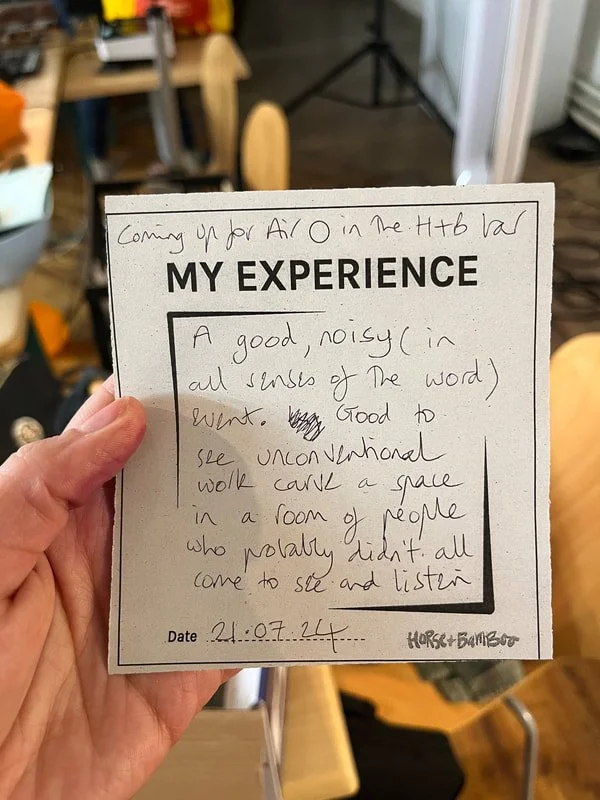 Coming up for Air O in the H+b bar
MY EXPERIENCE
A good, noisy (in
all senses of the word)
event. Good to
see unconventional
work carve a space
in a room of people
who probably didn't all
come to see and listen
Date 21.07.24
HORSE+BAMBOO